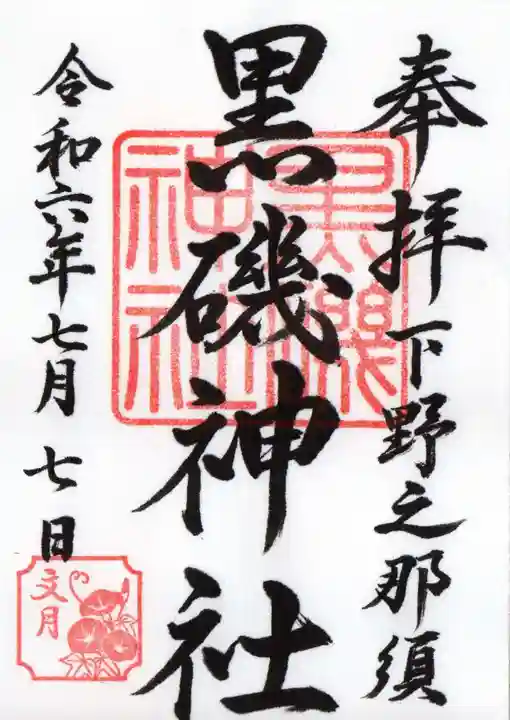 奉拝下野之那須
黒磯神社
黒磯神社
令和六年七月七日
文月